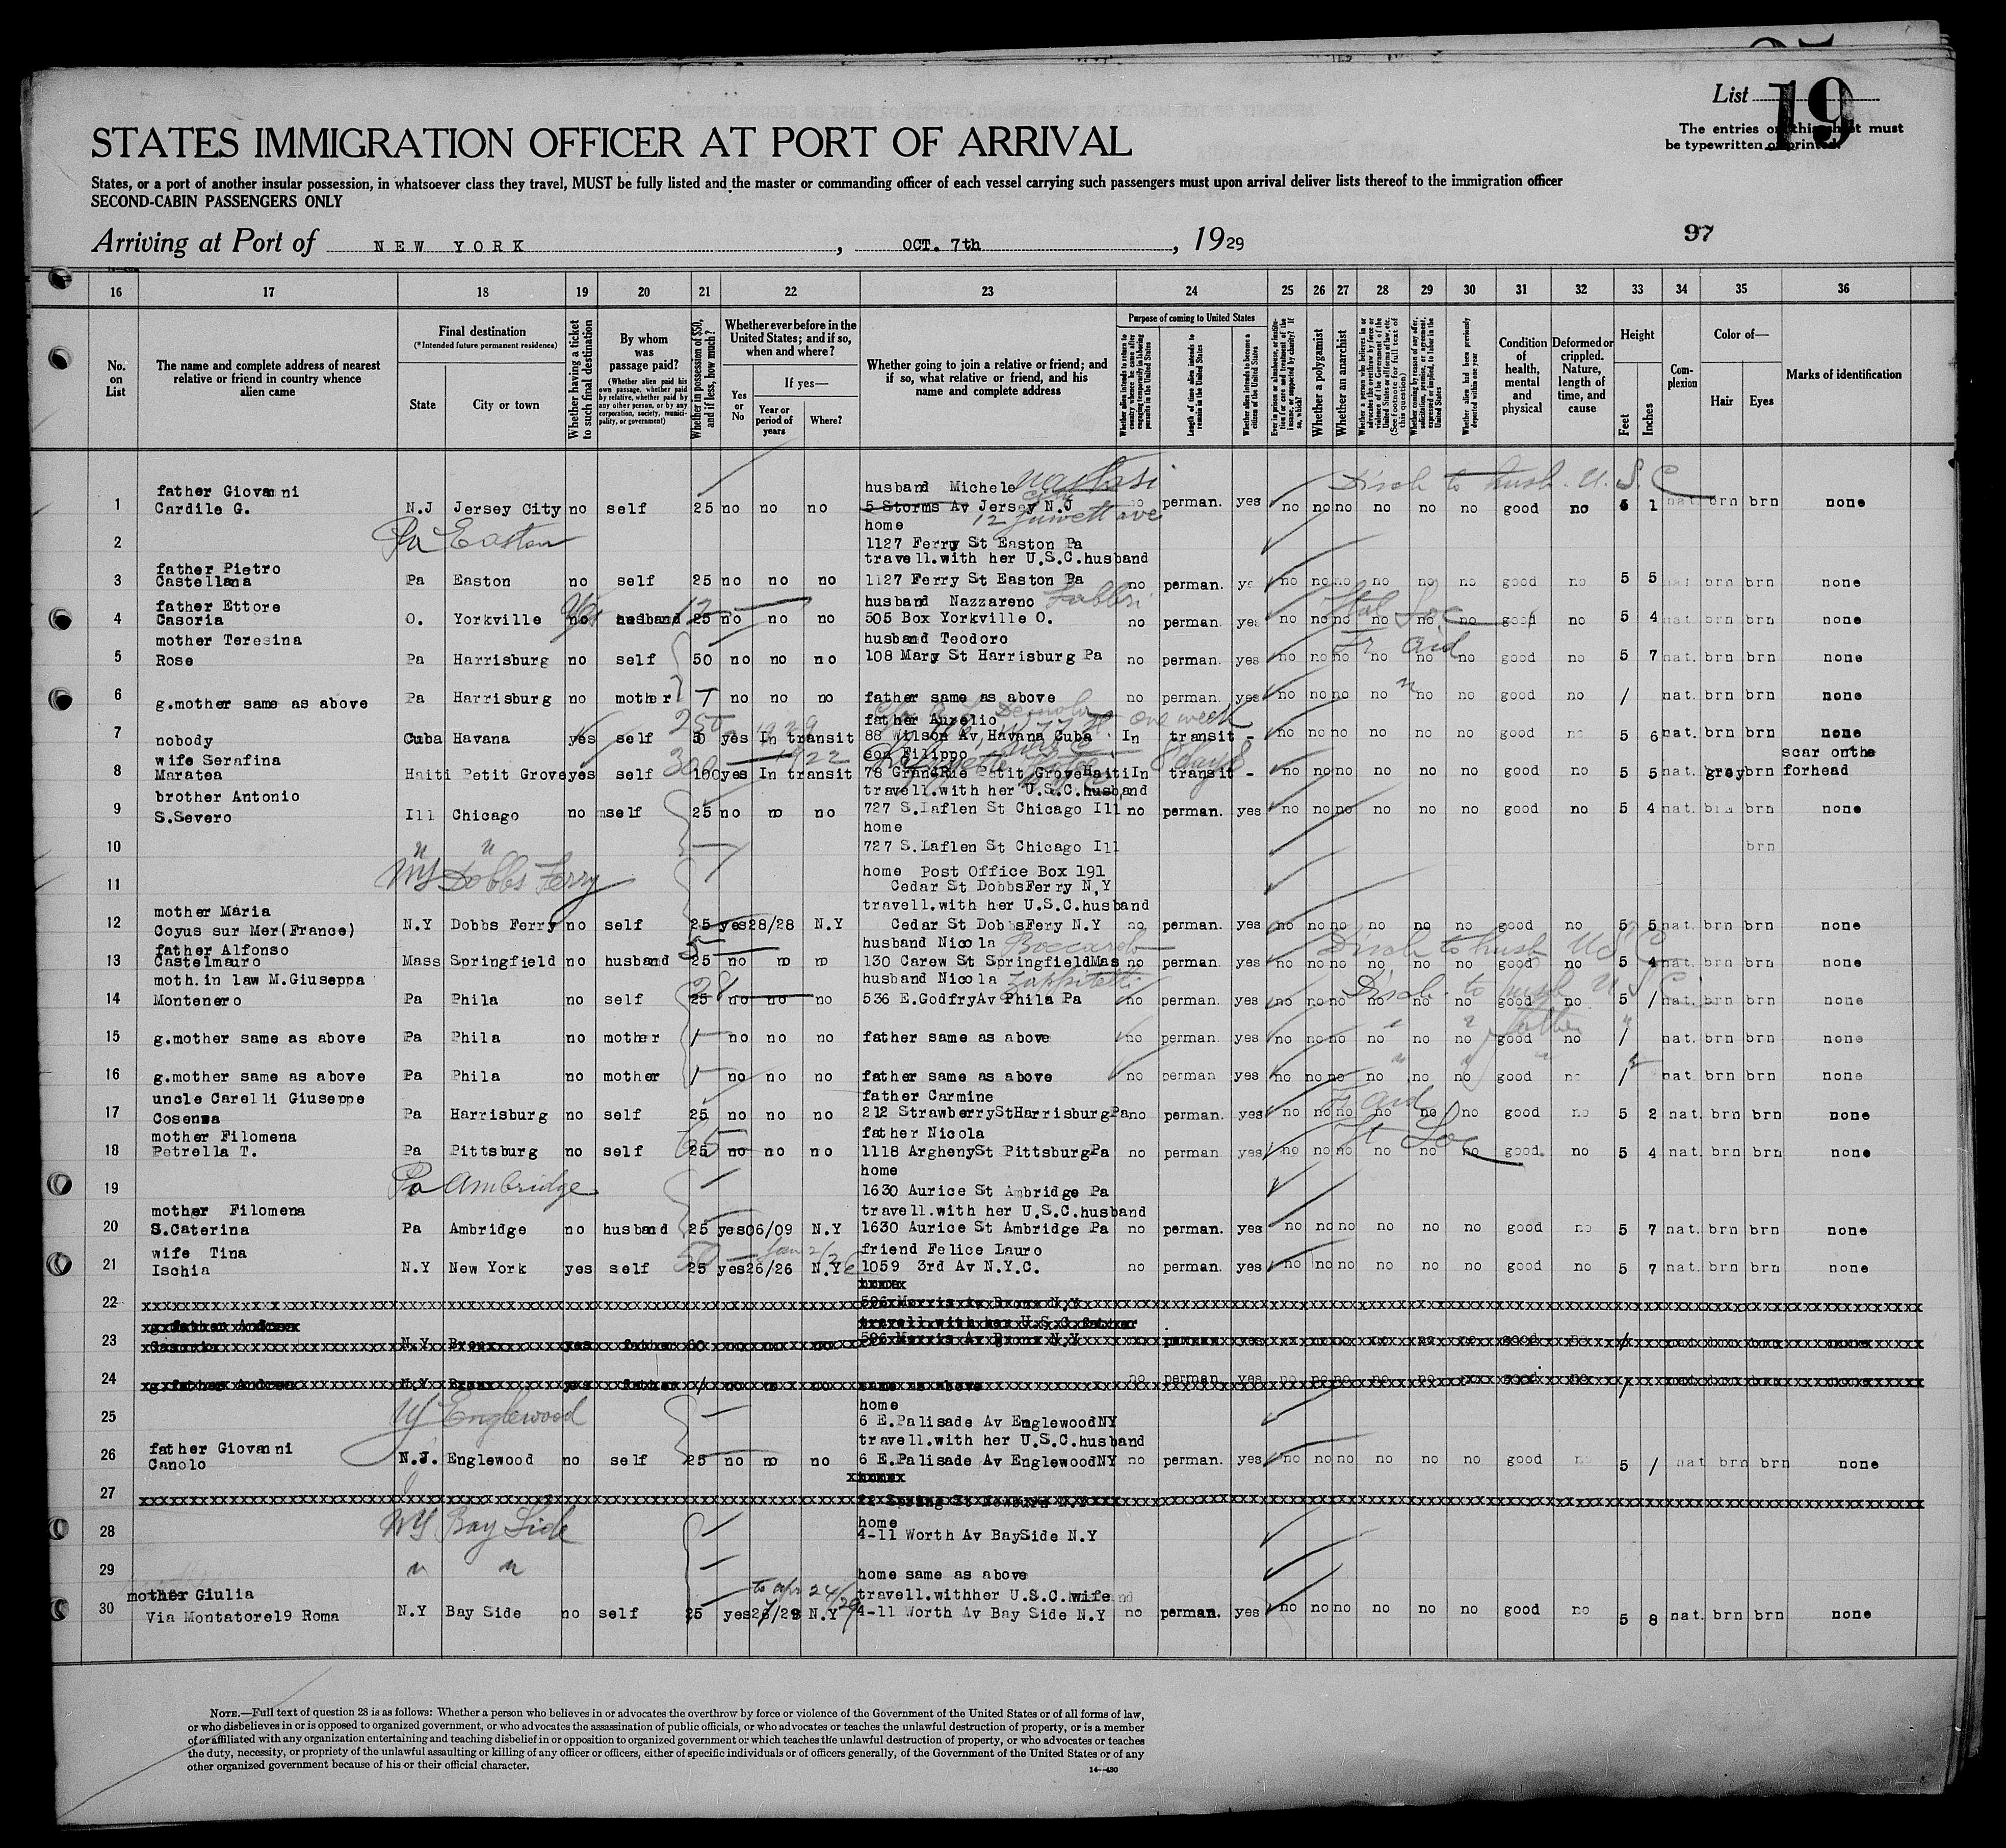 List 19
The entries on this sheet must
be typewritten or printed.
STATES IMMIGRATION OFFICER AT PORT OF ARRIVAL
States, or a port of another insular possession, in whatsoever class they travel, MUST be fully listed and the master or commanding officer of each vessel carrying such passengers must upon arrival deliver lists thereof to the immigration officer
SECOND-CABIN PASSENGERS ONLY
97
Arriving at Port of NEW YORK, OCT. 7th, 1929
16 17 18 19 20 21 22 23 24 25 26 27 28 29 30 31 32 33 34 35 36
No. on List
The name and complete address of nearest relative or friend in country whence alien came
Final destination
(*Intended future permanent residence)
State City or town
Whether having a ticket to such final destination
By whom was passage paid?
(Whether alien paid his own passage, whether paid by relative, whether paid by any other person, or by any corporation, society, municipality, or government)
Whether in possession of $50, and if less, how much?
Whether ever before in the United States; and if so, when and where?
Yes or No
If yes—
Year or period of years
Where?
Whether going to join a relative or friend; and if so, what relative or friend, and his name and complete address
Purpose of coming to United States
Whether alien intends to return to country whence he came after engaging temporarily in laboring pursuits in the United States
Length of time alien intends to remain in the United States
Whether alien intends to become a citizen of the United States
Whether a polygamist
Whether an anarchist
Condition of health, mental and physical
Deformed or crippled. Nature, length of time, and cause
Height
Feet Inches
Complexion
Color of—
Hair Eyes
Marks of identification
father Giovanni husband Michele
1 Cardile G. N.J Jersey City no self 25 no no no 5 Storms Av Jersey N.J no perman. yes no no no no no no good no 5 1 nat. brn brn none
Disch to husb. U.S.C
12 Jewett ave
home
2 Pa Easton 1127 Ferry St Easton Pa
father Pietro travell.with her U.S.C.husband
3 Castellana Pa Easton no self 25 no no no 1127 Ferry St Easton Pa no perman. yes no no no no no no good no 5 5 nat brn brn none
father Ettore husband Nazzareno Fabbri
4 Casoria O. Yorkville no husband 25 no no no 505 Box Yorkville O. no perman. yes no no no no no no good no 5 4 nat. brn brn none
Yes Ital Soc
mother Teresina husband Teodoro
5 Rose Pa Harrisburg no self 50 no no no 108 Mary St Harrisburg Pa no perman. yes no no no no no no good no 5 7 nat. brn brn none
Tr aid
6 g.mother same as above Pa Harrisburg no mother / no no no father same as above no perman. yes no no no no no no good no / nat. brn brn none
father Aurelio one week
7 nobody Cuba Havana yes self 50 yes In transit 88 Wilson Av Havana Cuba In transit - no no no no no no good no 5 6 nat. brn brn none
250 1929
wife Serafina son Filippo scar onthe
8 Maratea Haiti Petit Grove yes self 100 yes In transit 78 GrandRue Petit GroveHaiti In transit - no no no no no no good no 5 5 nat. grey brn forhead
300 1922 8 days
brother Antonio travell.with her U.S.C.husband
9 S.Severo Ill Chicago no self 25 no no no 727 S.Laflen St Chicago Ill no perman. yes no no no no no no good no 5 4 nat. brn brn none
home
10 " " 727 S.Laflen St Chicago Ill brn
home Post Office Box 191
11 NY Dobbs Ferry Cedar St DobbsFerry N,Y
mother Maria travell.with her U.S.C.husband
12 Coyus sur Mer(France) N.Y Dobbs Ferry no self 25 yes 28/28 N.Y Cedar St DobbsFery N.Y no perman. yes no no no no no no good no 5 5 nat. brn brn none
father Alfonso husband Nicola
13 Castelmauro Mass Springfield no husband 25 no no no 130 Carew St SpringfieldMas no perman. yes no no no no no no good no 5 4 nat. brn brn none
Disch to husb U.S.C
moth.in law M.Giuseppa husband Nicola
14 Montenero Pa Phila no self 25 no no no 536 E.GodfryAv Phila Pa no perman. yes no no no no no no good no 5 / nat. brn brn none
Disch. to husb U.S.C.
15 g.mother same as above Pa Phila no mother / no no no father same as above no perman. yes no no no no no no good no / nat. brn brn none
father
16 g.mother same as above Pa Phila no mother / no no no father same as above no perman yes no no no no no no good no / nat. brn brn none
uncle Carelli Giuseppe father Carmine
17 Cosenza Pa Harrisburg no self 25 no no no 212 StrawberryStHarrisburgPa no perman. yes no no no no no no good no 5 2 nat. brn brn none
Tr aid
mother Filomena father Nicola
18 Petrella T. Pa Pittsburg no self 25 no no no 1118 ArghenySt PittsburgPa no perman yes no no no no no no good. no 5 4 nat. brn brn none
65 It Soc
home
19 Pa Ambridge 1630 Aurice St Ambridge Pa
mother Filomena travell.with her U.S.C.husband
20 S.Caterina Pa Ambridge no husband 25 yes 06/09 N.Y 1630 Aurice St Ambridge Pa no perman. yes no no no no no no good no 5 7 nat. brn brn none
wife Tina friend Felice Lauro
21 Ischia N.Y New York yes self 25 yes 26/26 N.Y 1059 3rd Av N.Y.C. no perman. yes no no no no no no good no 5 7 nat. brn brn none
50
22 596 Morris Av Bronx N,Y
g.father Andrea travell.with her U.S.C.father
23 Casoria N.Y Bronx yes father 60 no no no 596 Morris Av Bronx N,Y no perman yes no no no no no no good no / nat brn brn none
24 g.father Andrea N.Y Bronx yes father / no no no same as above no perman yes no no no no no no good no / nat brn brn none
home
25 NJ Englewood 6 E.Palisade Av EnglewoodNY
father Giovanni travell.with her U.S.C.husband
26 Canolo N.J. Englewood no self 25 no no no 6 E.Palisade Av EnglewoodNY no perman. yes no no no no no no good no 5 / nat brn brn none
27
home
28 NY Bay Side 4-11 Worth Av BaySide N.Y
29 " " home same as above
mother Giulia travell.withher U.S.C.wife
30 Via Montatore19 Roma N.Y Bay Side no self 25 yes N.Y 4-11 Worth Av Bay Side N.Y no perman. yes no no no no no no good no 5 8 nat. brn brn none
NOTE.—Full text of question 28 is as follows: Whether a person who believes in or advocates the overthrow by force or violence of the Government of the United States or of all forms of law,
or who disbelieves in or is opposed to organized government, or who advocates the assassination of public officials, or who advocates or teaches the unlawful destruction of property, or is a member
of or affiliated with any organization entertaining and teaching disbelief in or opposition to organized government or which teaches the unlawful destruction of property, or who advocates or teaches
the duty, necessity, or propriety of the unlawful assaulting or killing of any officer or officers, either of specific individuals or of officers generally, of the Government of the United States or of any
other organized government because of his or their official character.
14—430